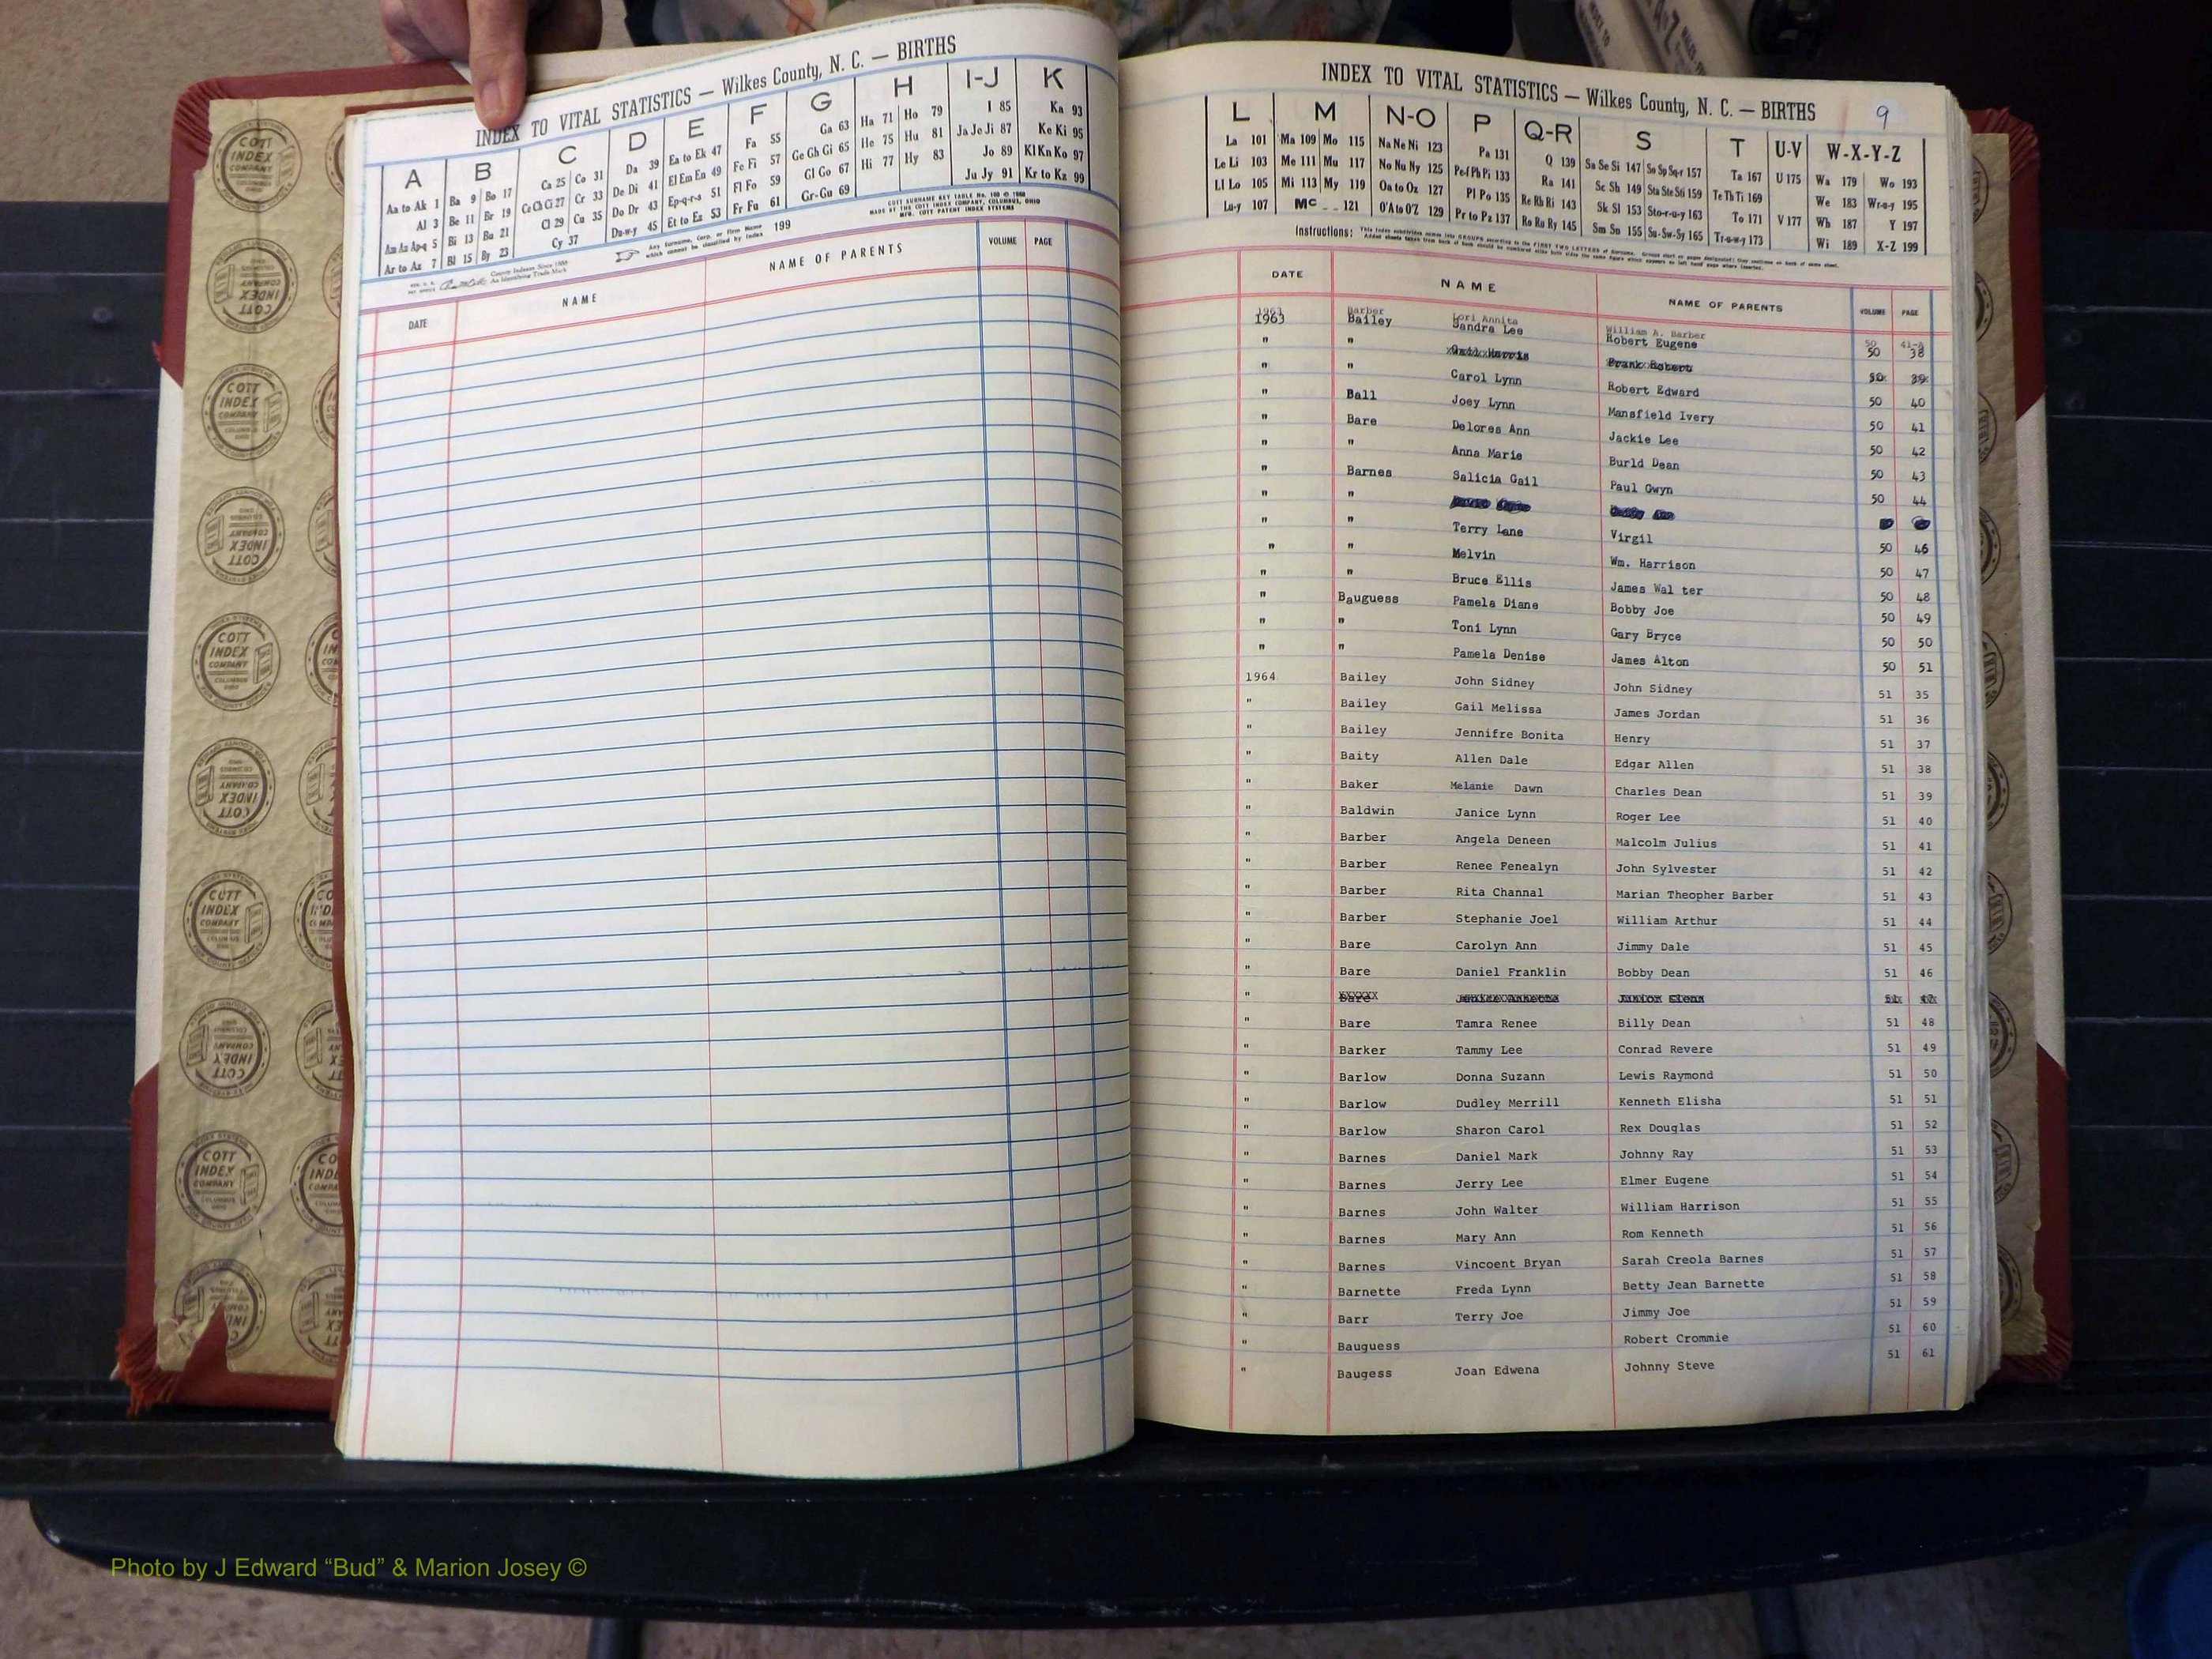 INDEX TO VITAL STATISTICS — Wilkes County, N. C. — BIRTHS
A B C D E F G H I-J K
Aa to Ak 1 Ba 9 Bo 17 Ca 25 Co 31 Da 39 Ea to Ek 47 Fa 55 Ga 63 Ha 71 Ho 79 I 85 Ka 93
Al 3 Be 11 Br 19 Ce Ch Ci 27 Cr 33 De Di 41 El Em En 49 Fe Fi 57 Ge Gh Gi 65 He 75 Hu 81 Ja Je Ji 87 Ke Ki 95
Am An Ap-q 5 Bi 13 Bu 21 Cl 29 Cu 35 Do Dr 43 Ep-q-r-s 51 Fl Fo 59 Gl Go 67 Hi 77 Hy 83 Jo 89 Kl Kn Ko 97
Ar to Az 7 Bl 15 By 23 Cy 37 Du-w-y 45 Et to Ez 53 Fr Fu 61 Gr-Gu 69 Ju Jy 91 Kr to Kz 99
COTT SURNAME KEY TABLE
MADE BY THE COTT INDEX COMPANY, COLUMBUS, OHIO
MFG. COTT PATENT INDEX SYSTEMS
Any Surname, Corp. or Firm Name
which cannot be classified by Index 199
County Indexes Since 1888
An Identifying Trade Mark
DATE NAME NAME OF PARENTS VOLUME PAGE
INDEX TO VITAL STATISTICS — Wilkes County, N. C. — BIRTHS 9
L M N-O P Q-R S T U-V W-X-Y-Z
La 101 Ma 109 Mo 115 Na Ne Ni 123 Pa 131 Q 139 Sa Se Si 147 So Sp Sq-r 157 Ta 167 U 175 Wa 179 Wo 193
Le Li 103 Me 111 Mu 117 No Nu Ny 125 Pe-f Ph Pi 133 Ra 141 Sc Sh 149 Sta Ste Sti 159 Te Th Ti 169 We 183 Wr-u-y 195
Ll Lo 105 Mi 113 My 119 Oa to Oz 127 Pl Po 135 Re Rh Ri 143 Sk Sl 153 Sto-r-u-y 163 To 171 V 177 Wh 187 Y 197
Lu-y 107 Mc 121 O'A to O'Z 129 Pr to Pz 137 Ro Ru Ry 145 Sm Sn 155 Su-Sw-Sy 165 Tr-u-w-y 173 Wi 189 X-Z 199
Instructions:
DATE NAME NAME OF PARENTS VOLUME PAGE
1963 Barber Lori Annita William A. Barber 50 41-A
1963 Bailey Sandra Lee Robert Eugene 50 38
" " Gail Harris Frank Robert 50 39
" " Carol Lynn Robert Edward 50 40
" Ball Joey Lynn Mansfield Ivery 50 41
" Bare Delores Ann Jackie Lee 50 42
" " Anna Marie Burld Dean 50 43
" Barnes Salicia Gail Paul Gwyn 50 44
" "
" " Terry Lane Virgil 50 46
" " Melvin Wm. Harrison 50 47
" " Bruce Ellis James Wal ter 50 48
" Bauguess Pamela Diane Bobby Joe 50 49
" " Toni Lynn Gary Bryce 50 50
" " Pamela Denise James Alton 50 51
1964 Bailey John Sidney John Sidney 51 35
" Bailey Gail Melissa James Jordan 51 36
" Bailey Jennifre Bonita Henry 51 37
" Baity Allen Dale Edgar Allen 51 38
" Baker Melanie Dawn Charles Dean 51 39
" Baldwin Janice Lynn Roger Lee 51 40
" Barber Angela Deneen Malcolm Julius 51 41
" Barber Renee Fenealyn John Sylvester 51 42
" Barber Rita Channal Marian Theopher Barber 51 43
" Barber Stephanie Joel William Arthur 51 44
" Bare Carolyn Ann Jimmy Dale 51 45
" Bare Daniel Franklin Bobby Dean 51 46
" Bare 51 47
" Bare Tamra Renee Billy Dean 51 48
" Barker Tammy Lee Conrad Revere 51 49
" Barlow Donna Suzann Lewis Raymond 51 50
" Barlow Dudley Merrill Kenneth Elisha 51 51
" Barlow Sharon Carol Rex Douglas 51 52
" Barnes Daniel Mark Johnny Ray 51 53
" Barnes Jerry Lee Elmer Eugene 51 54
" Barnes John Walter William Harrison 51 55
" Barnes Mary Ann Rom Kenneth 51 56
" Barnes Vincoent Bryan Sarah Creola Barnes 51 57
" Barnette Freda Lynn Betty Jean Barnette 51 58
" Barr Terry Joe Jimmy Joe 51 59
" Bauguess Robert Crommie 51 60
" Baugess Joan Edwena Johnny Steve 51 61
COTT INDEX COMPANY COLUMBUS OHIO
Photo by J Edward “Bud” & Marion Josey ©